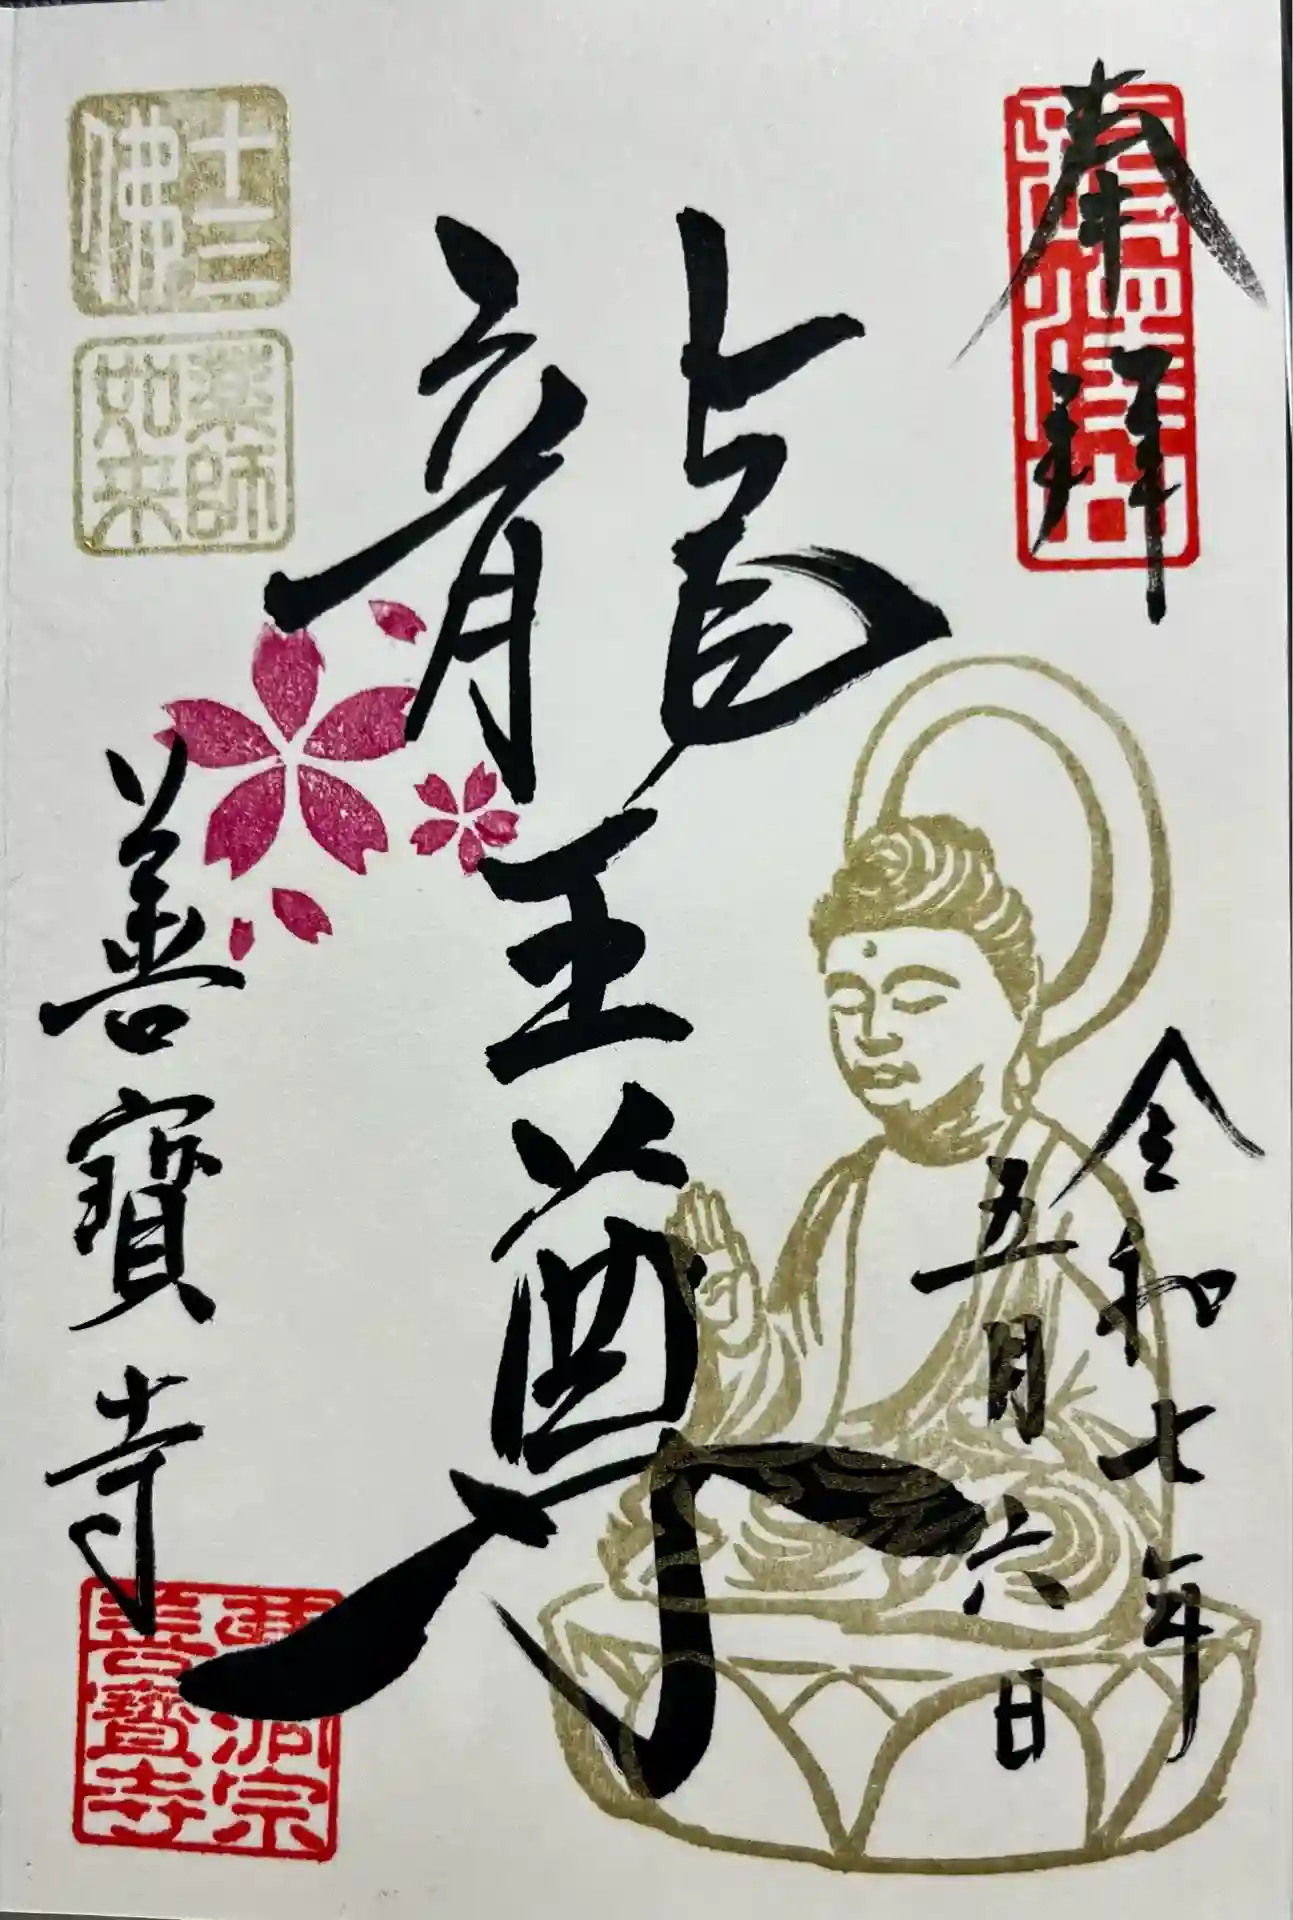 奉拝
龍澤山
令和七年
五月六日
龍王尊
十三佛
薬師如来
善寳寺
曹洞宗
善寳寺